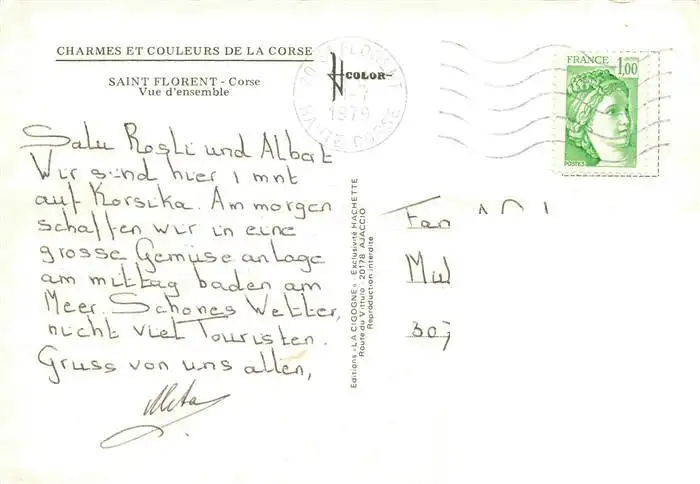 CHARMES ET COULEURS DE LA CORSE
SAINT FLORENT - Corse
Vue d'ensemble
COLOR
HAUTE CORSE
1979
FRANCE
1,00
POSTES
Salu Rosli und Albert
Wir sind hier 1 mnt
auf Korsika. Am morgen
schaffen wir in eine
grosse Gemüse anlage
am mittag baden am
Meer. Schönes Wetter,
nicht viel Touristen.
Gruss von uns allen,
Editions «LA CIGOGNE» - Exclusivité HACHETTE
Route du Vittulo - 20178 AJACCIO
Reproduction interdite
Fam
Mul
307